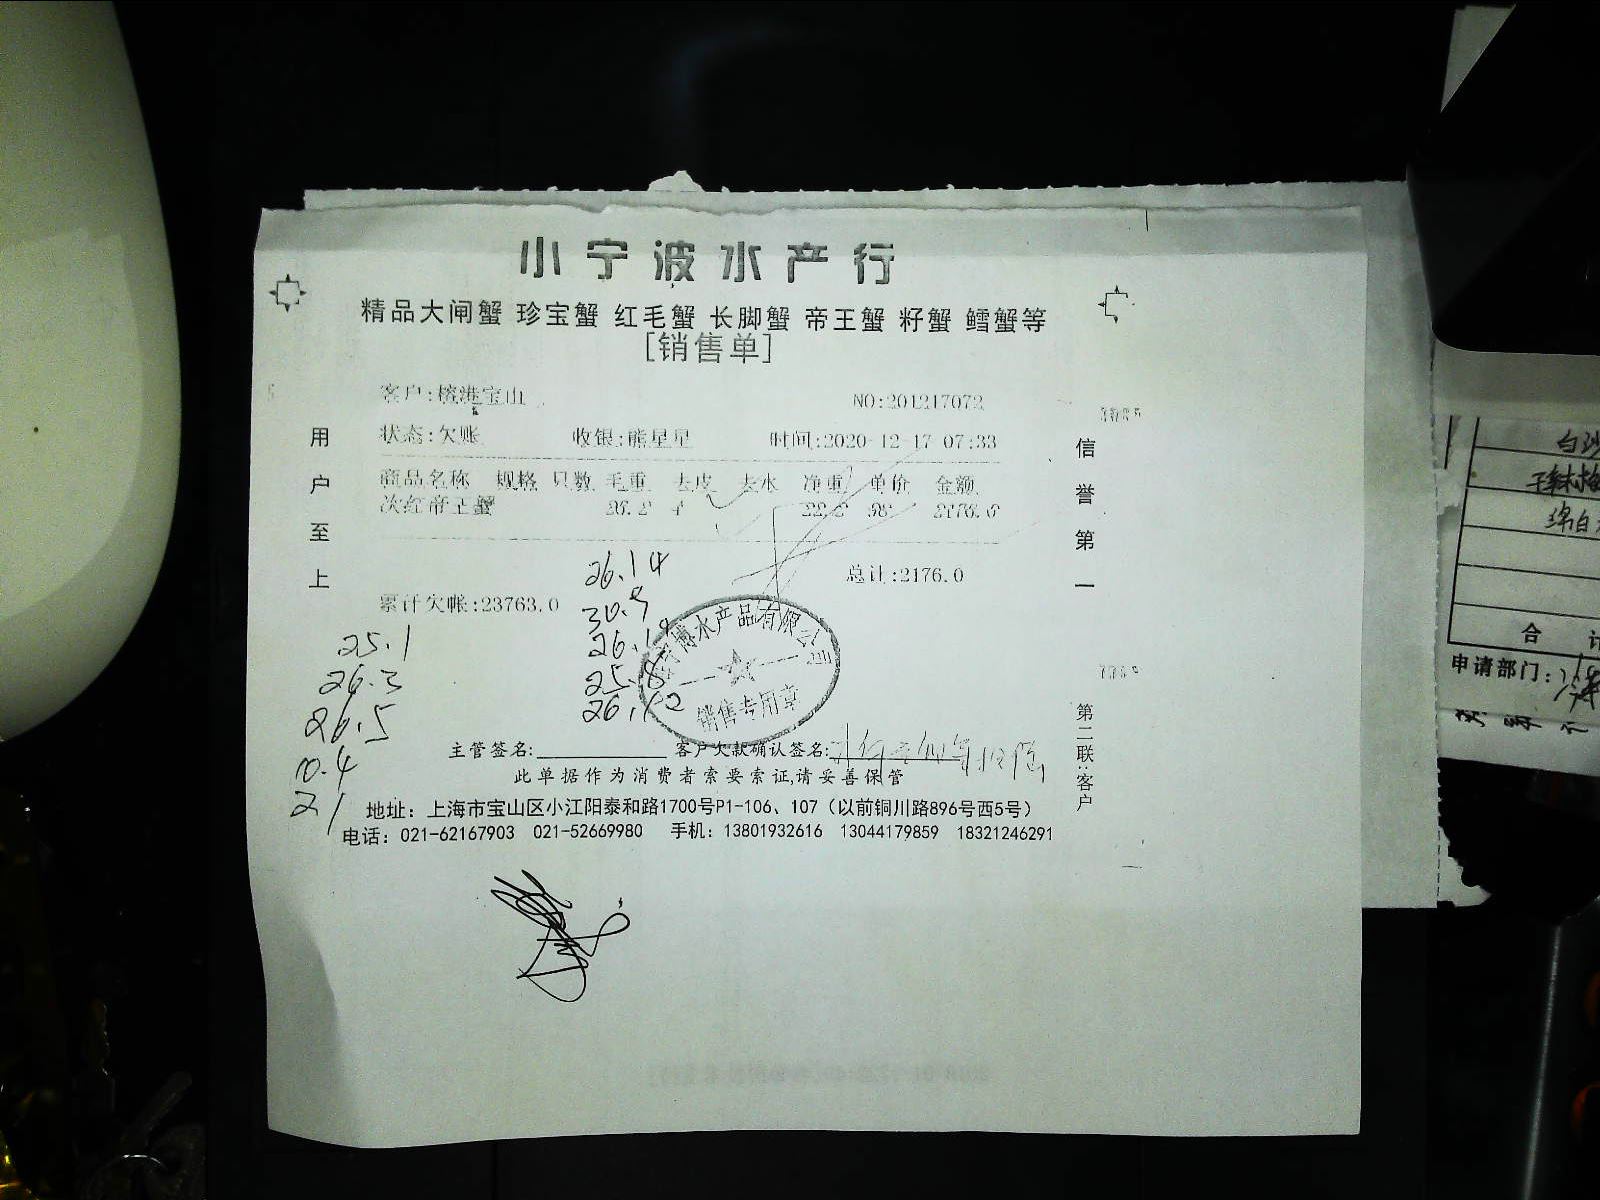 小宁波水产行
精品大闸蟹 珍宝蟹 红毛蟹 长脚蟹 帝王蟹 籽蟹 鳕蟹等
[销售单]
客户:榕港宝山 NO:201217072
状态:欠账 收银:熊星星 时间:2020-12-17 07:33
商品名称 规格 只数 毛重 去皮 去水 净重 单价 金额
次红帝王蟹 26.2 4 22.2 98 2176.0
总计:2176.0
累计欠帐:23763.0
用户至上
信誉第一
第二联:客户
26.14
30.9
25.8
25.1
26.3
26.5
10.4
21
博水产品有限公司
销售专用章
主管签名: 客户欠款确认签名:
此单据作为消费者索要索证,请妥善保管
地址：上海市宝山区小江阳泰和路1700号P1-106、107（以前铜川路896号西5号）
电话：021-62167903 021-52669980 手机：13801932616 13044179859 18321246291
合
申请部门: